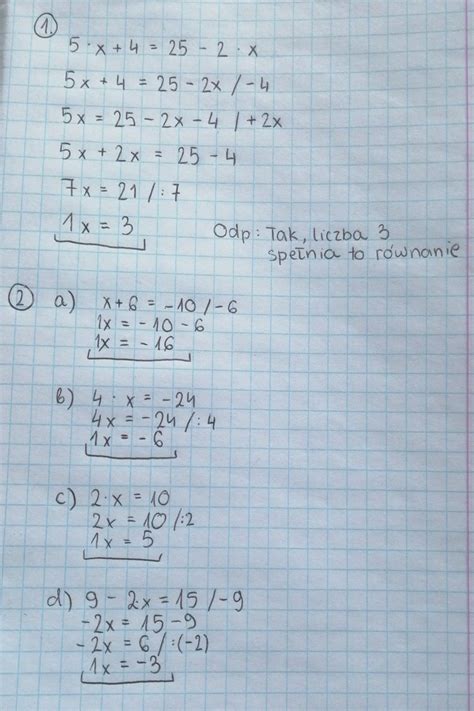 1.
5 · x + 4 = 25 - 2 · x
5x + 4 = 25 - 2x / -4
5x = 25 - 2x - 4 / +2x
5x + 2x = 25 - 4
7x = 21 / :7
1x = 3
Odp: Tak, liczba 3
spełnia to równanie
2 a) x + 6 = -10 / -6
1x = -10 - 6
1x = -16
b) 4 · x = -24
4x = -24 / : 4
1x = -6
c) 2 · x = 10
2x = 10 / :2
1x = 5
d) 9 - 2·x = 15 / -9
-2x = 15 - 9
-2x = 6 / :(-2)
1x = -3